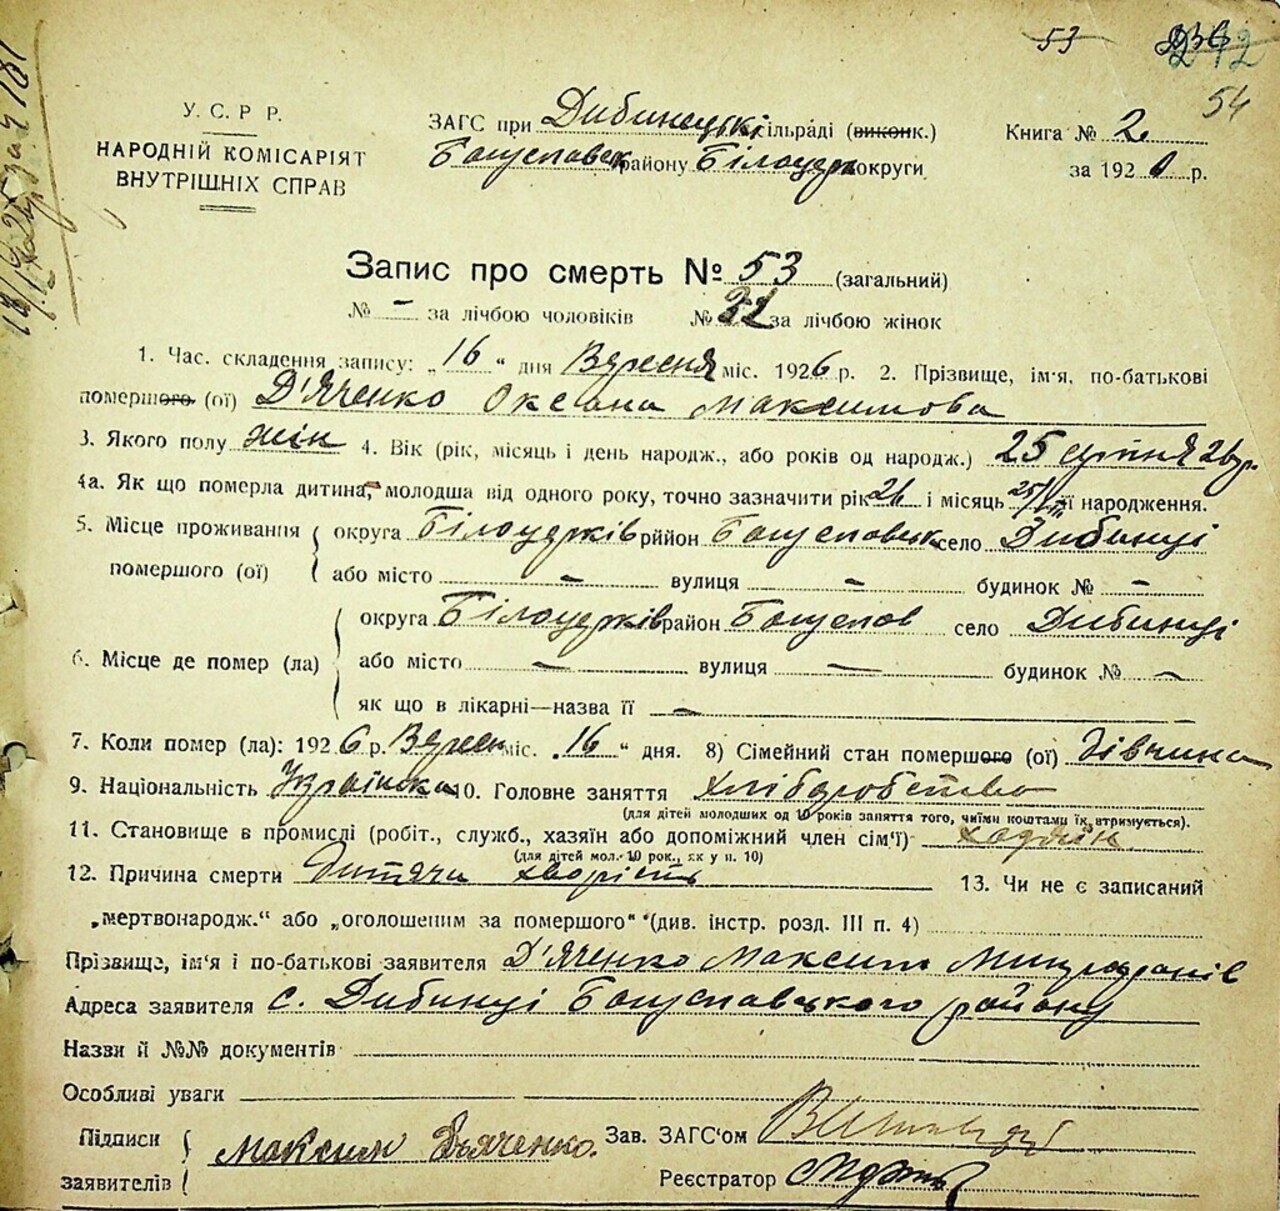 53
54
У. С. Р. Р.
НАРОДНІЙ КОМІСАРІЯТ
ВНУТРІШНІХ СПРАВ
ЗАГС при Дибинецькі сільраді (виконк.)
Богуславськ району Білоцерк округи
Книга № 2
за 192 р.
Запис про смерть № 53 (загальний)
№ - за лічбою чоловіків № 32 за лічбою жінок
1. Час. складення запису: „16" дня Вересня міс. 1926 р. 2. Прізвище, ім'я, по-батькові
помершого (ої) Д'Яченко Оксана Максимова
3. Якого полу жін 4. Вік (рік, місяць і день народж., або років од народж.) 25 серпня 26 р.
4а. Як що померла дитина, молодша від одного року, точно зазначити рік 26 і місяць 25/VIII її народження.
5. Місце проживання округа Білоцерків рийон Богуславськ село Дибинці
помершого (ої) або місто - вулиця - будинок № -
округа Білоцерків район Богуслов село Дибинці
6. Місце де помер (ла) або місто - вулиця - будинок № -
як що в лікарні—назва її -
7. Коли помер (ла): 1926 р. Верес міс. „16" дня. 8) Сімейний стан помершого (ої) дівчина
9. Національність Українка 10. Головне заняття хліборобство
(для дітей молодших од 10 років заняття того, чиїми коштами їх втримується).
11. Становище в промислі (робіт., служб., хазяїн або допоміжний член сім'ї) хазяїн
(для дітей мол. 10 рок., як у п. 10)
12. Причина смерти Дитяча хворість 13. Чи не є записаний
„мертвонародж." або „оголошеним за помершого" (див. інстр. розд. III п. 4)
Прізвище, ім'я і по-батькові заявителя Д'Яченко Максим
Адреса заявителя с. Дибинці Богуславського району
Назви й №№ документів
Особливі уваги
Підписи Максим Дьяченко. Зав. ЗАГС'ом
заявителів Реєстратор